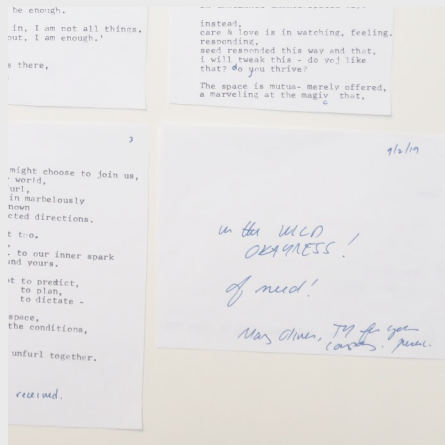 be enough.
in, I am not all things,
but, I am enough.'
s there,
instead,
care & love is in watching, feeling,
responding,
seed responded this way and that,
i will tweak this - do yoj like
that? do you thrive?
The space is mutua- merely offered,
a marveling at the magiv that,
c
3
might choose to join us,
world,
url,
in marbelously
nown
cted directions.
t too.
. to our inner spark
and yours.
ot to predict,
to plan,
to dictate -
space,
the conditions,
unfurl together.
received.
9/2/19
in the WILD
OKAYNESS!
of need!
Mary Oliver, TY for your